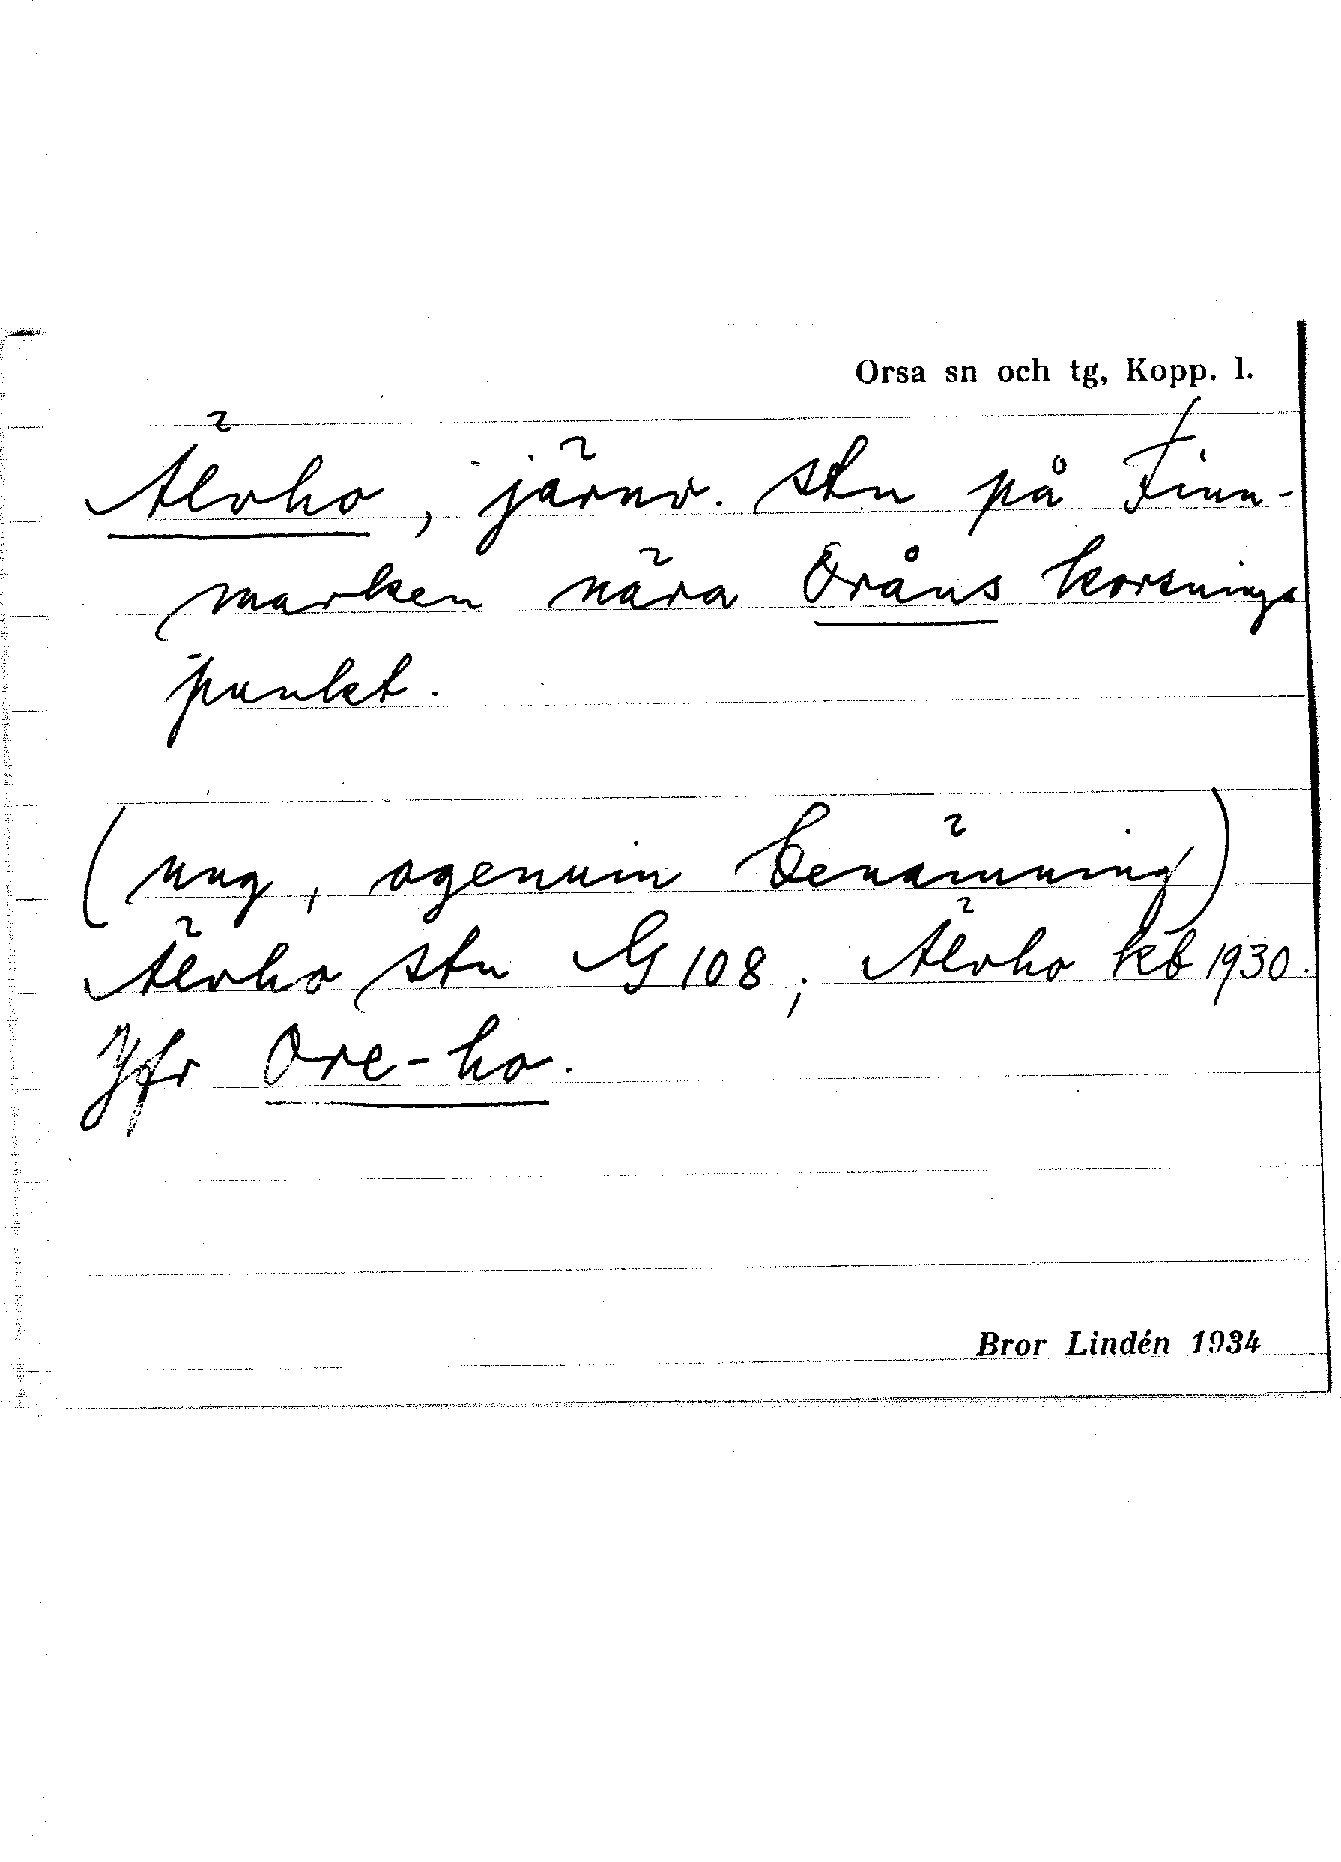 Orsa sn och tg, Kopp. l.
Älvho, järnv. stn på Finn-
marken nära Oråns korsnings
punkt.
(ung, ogenuin benämning)
Älvho stn G 108; Älvho kb 1930.
Jfr Ore-ho.
Bror Lindén 1934